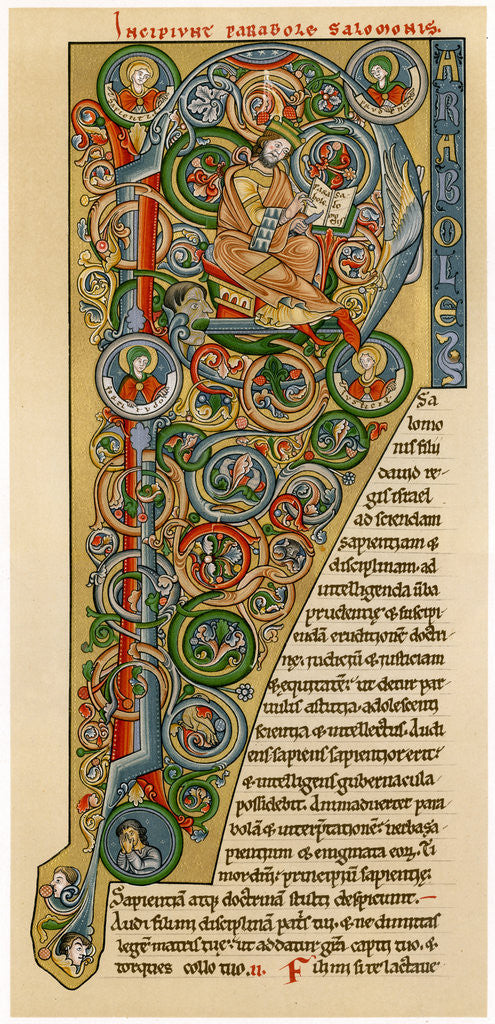 INCIPIUNT PARABOLE SALOMONIS.
ARABOLES
para
bole
sa
lo
mo
nis
Sa
lomo
nis filii
dauid re-
gis israel
ad sciendam
sapientiam &
disciplinam. ad
intelligenda ūba
prudentię & suscipi
endā eruditionē doctri-
nę. iudiciū & iusticiam
& equitatē. ut detur par-
uulis astutia. adolescenti
scientia & intellectus. Audi
ens sapiens sapientior erit.
& intelligens gubernacula
possidebit. Animaduertet para-
bolā & interp̄tationē. uerba sa-
pientium & enigmata eoꝝ. Ti
mor dn̄i. principiū sapientię.
Sapientiā atq; doctrinā stulti despiciunt.
Audi fili mi disciplinā patris tui. & ne dimittas
legē matris tuę. ut addatur grā capiti tuo. &
torques collo tuo. .ii. Fili mi si te lactaue-